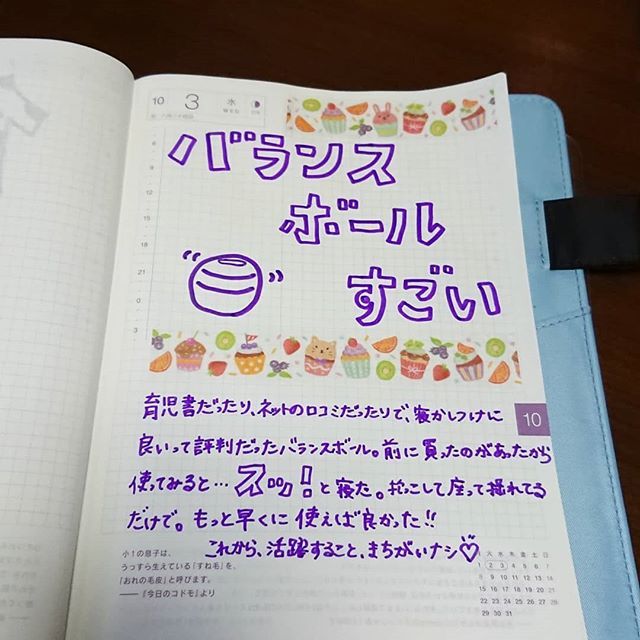 10 3 水
WED
バランス
ボール
すごい
育児書だったり、ネットの口コミだったりで、寝かしつけに
良いって評判だったバランスボール。前に買ったのがあったから
使ってみると…スッ!と寝た。抱っこして座って揺れてる
だけで。もっと早くに使えば良かった!!
これから、活躍すること、まちがいナシ♡
10
小1の息子は、
うっすら生えている「すね毛」を、
「おれの毛皮」と呼びます。
——『今日のコドモ』より
月 火 水 木 金 土 日
1 2 3 4 5 6 7
8 9 10 11 12 13 14
15 16 17 18 19 20 21
22 23 24 25 26 27 28
29 30 31